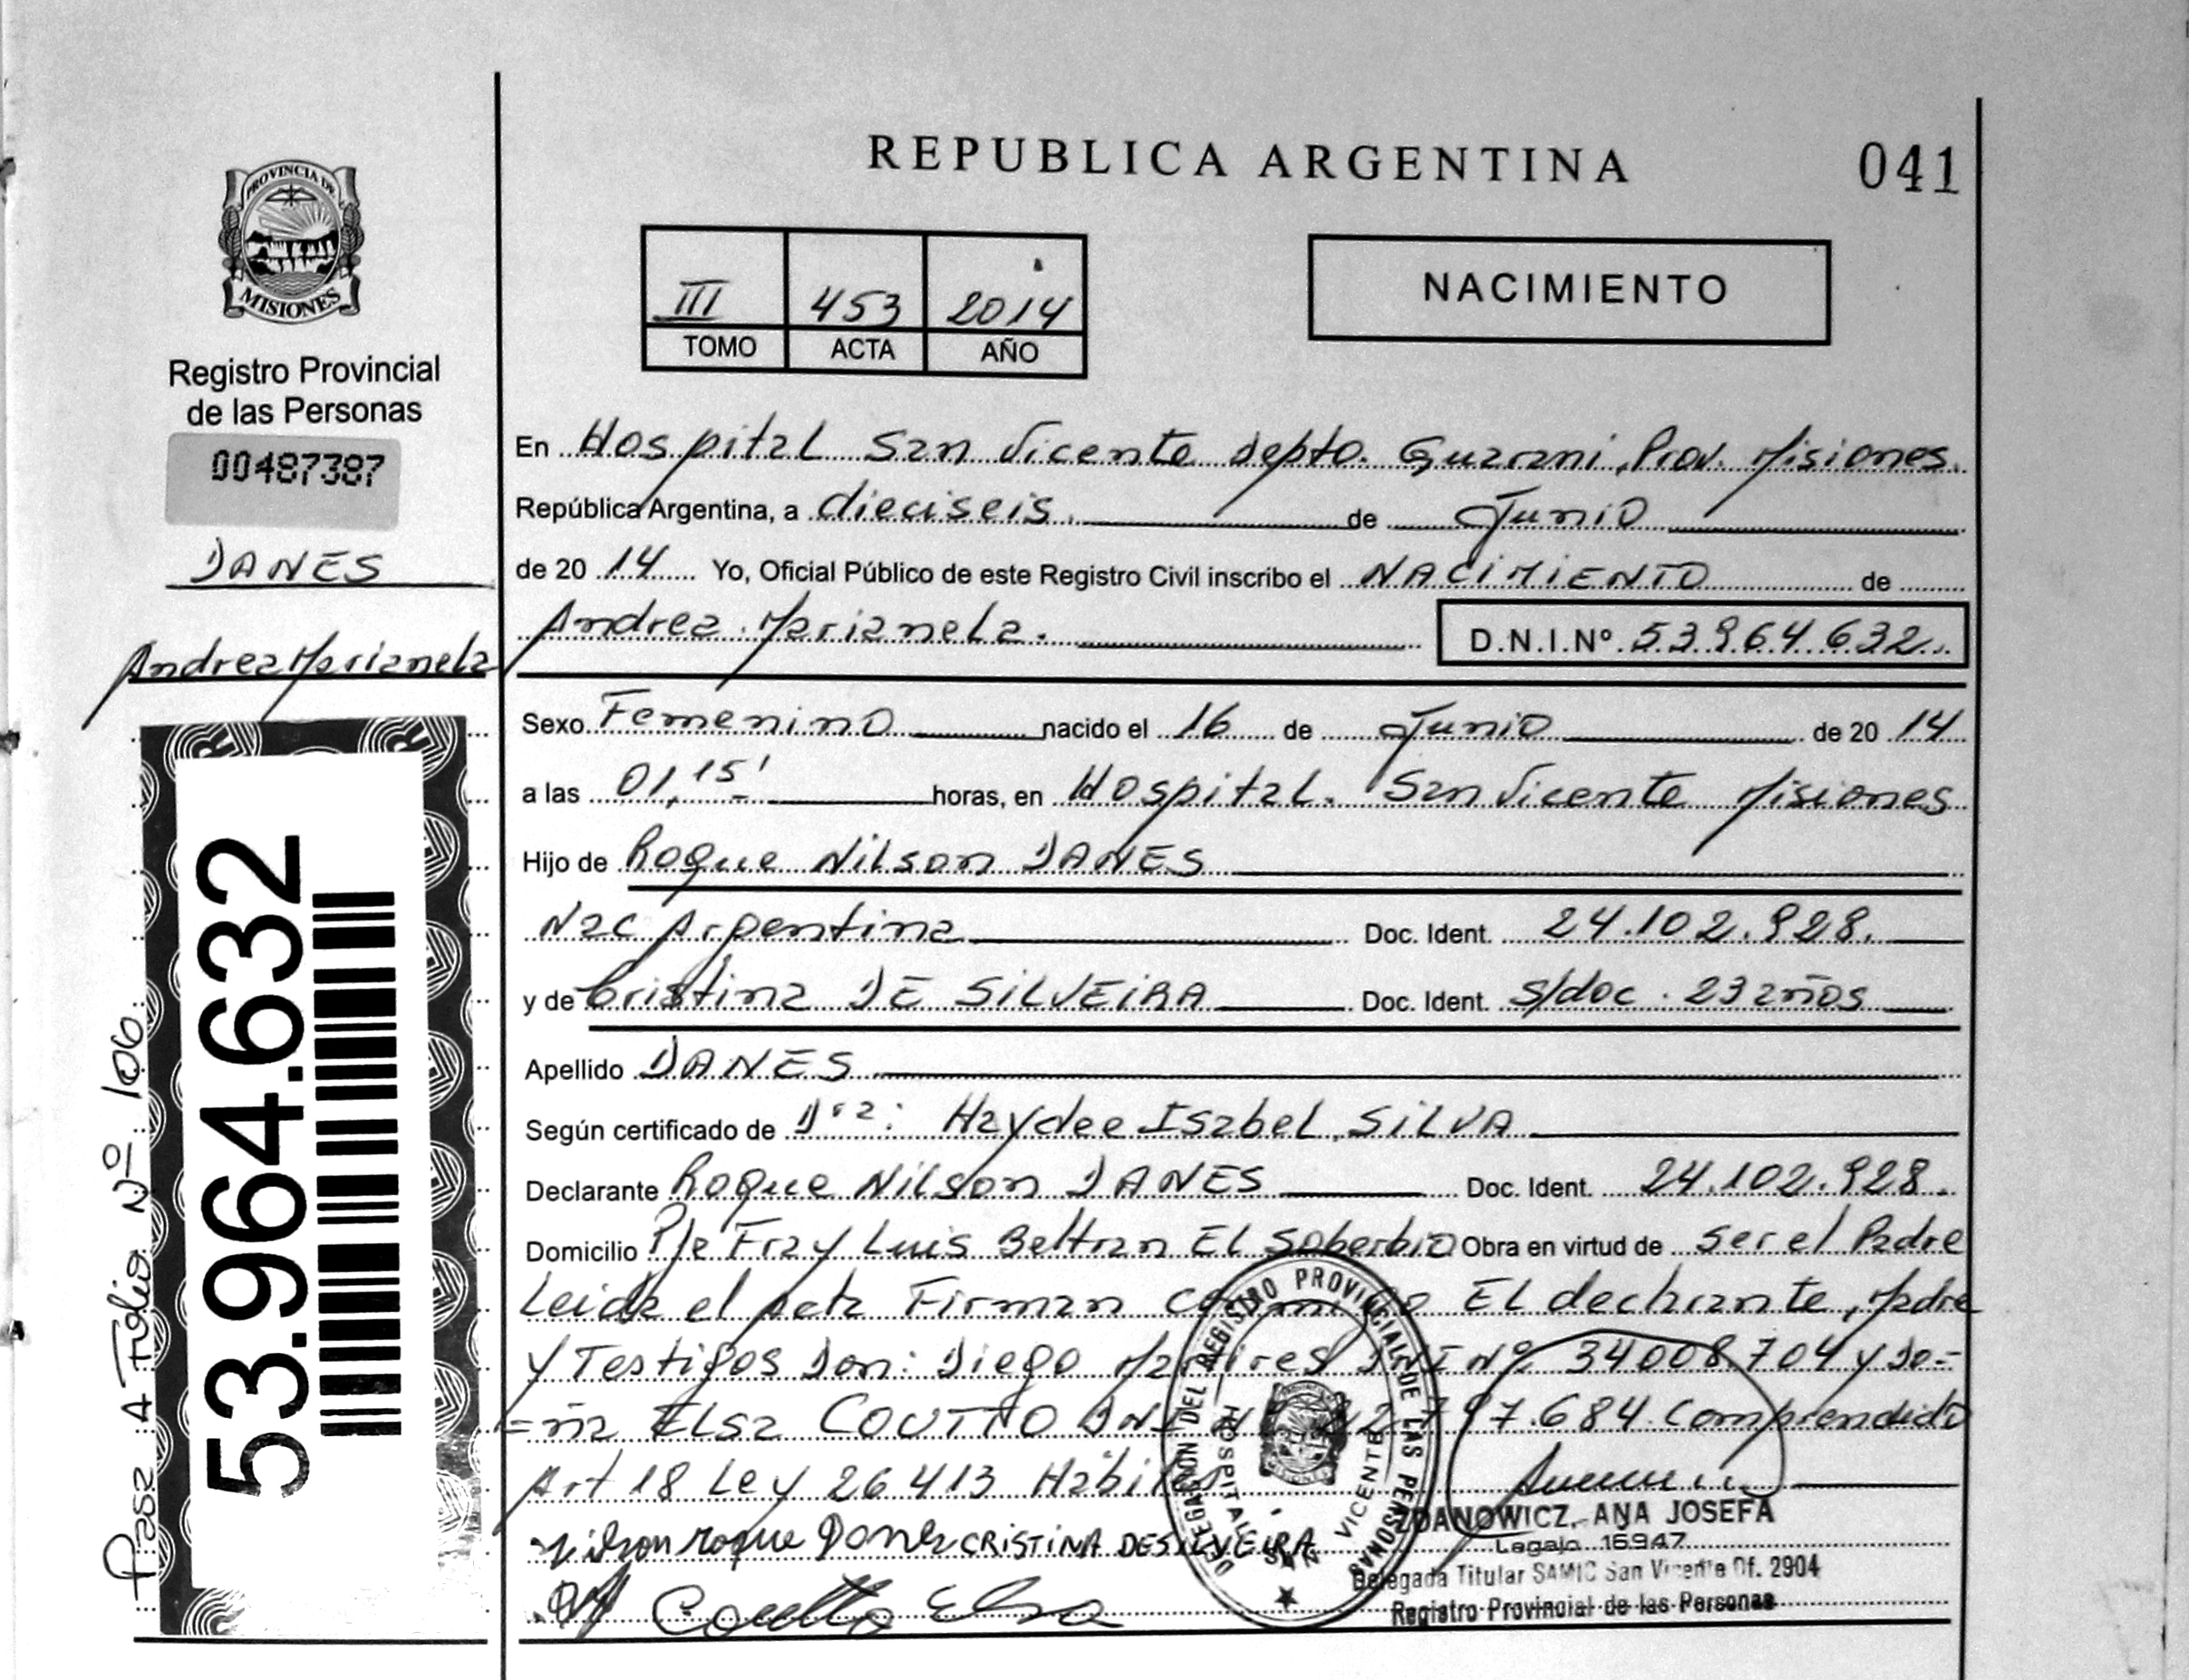 REPUBLICA ARGENTINA
041
PROVINCIA DE
MISIONES
Registro Provincial
de las Personas
00487387
DANES
Andrea Marianela
53.964.632
Pasa A Folio Nº 106.
III 453 2014
TOMO ACTA AÑO
NACIMIENTO
En Hospital San Vicente depto. Guarani, Prov. Misiones.
República Argentina, a dieciseis. de Junio
de 20 14 Yo, Oficial Público de este Registro Civil inscribo el NACIMIENTO de
Andrea Marianela. D.N.I.Nº 53.964.632.
Sexo Femenino nacido el 16 de Junio de 20 14
a las 01,15' horas, en Hospital. San Vicente Misiones
Hijo de Roque Nilson DANES
Nac Argentina Doc. Ident. 24.102.928.
y de Cristina DE SILVEIRA Doc. Ident. s/doc. 23 años
Apellido DANES
Según certificado de Dra: Haydee Isabel SILVA
Declarante Roque Nilson DANES Doc. Ident. 24.102.928.
Domicilio Pje Fray Luis Beltran El Soberbio Obra en virtud de ser el Padre
Leida el acta Firman conmigo El declarante, Madre
y Testigos Don: Diego DNI Nº 34008.704 y Do=
=ña Elsa COUTTO DNI Nº 797.684. Comprendido
Art 18 Ley 26413 Habiles
Nilson roque Danes CRISTINA DESILVEIRA
Coutto Elsa
DELEGACION DEL REGISTRO PROVINCIAL DE LAS PERSONAS
HOSPITAL SAN VICENTE
ZDANOWICZ, ANA JOSEFA
Legajo 16947
Delegada Titular SAMIC San Vicente Of. 2904
Registro Provincial de las Personas